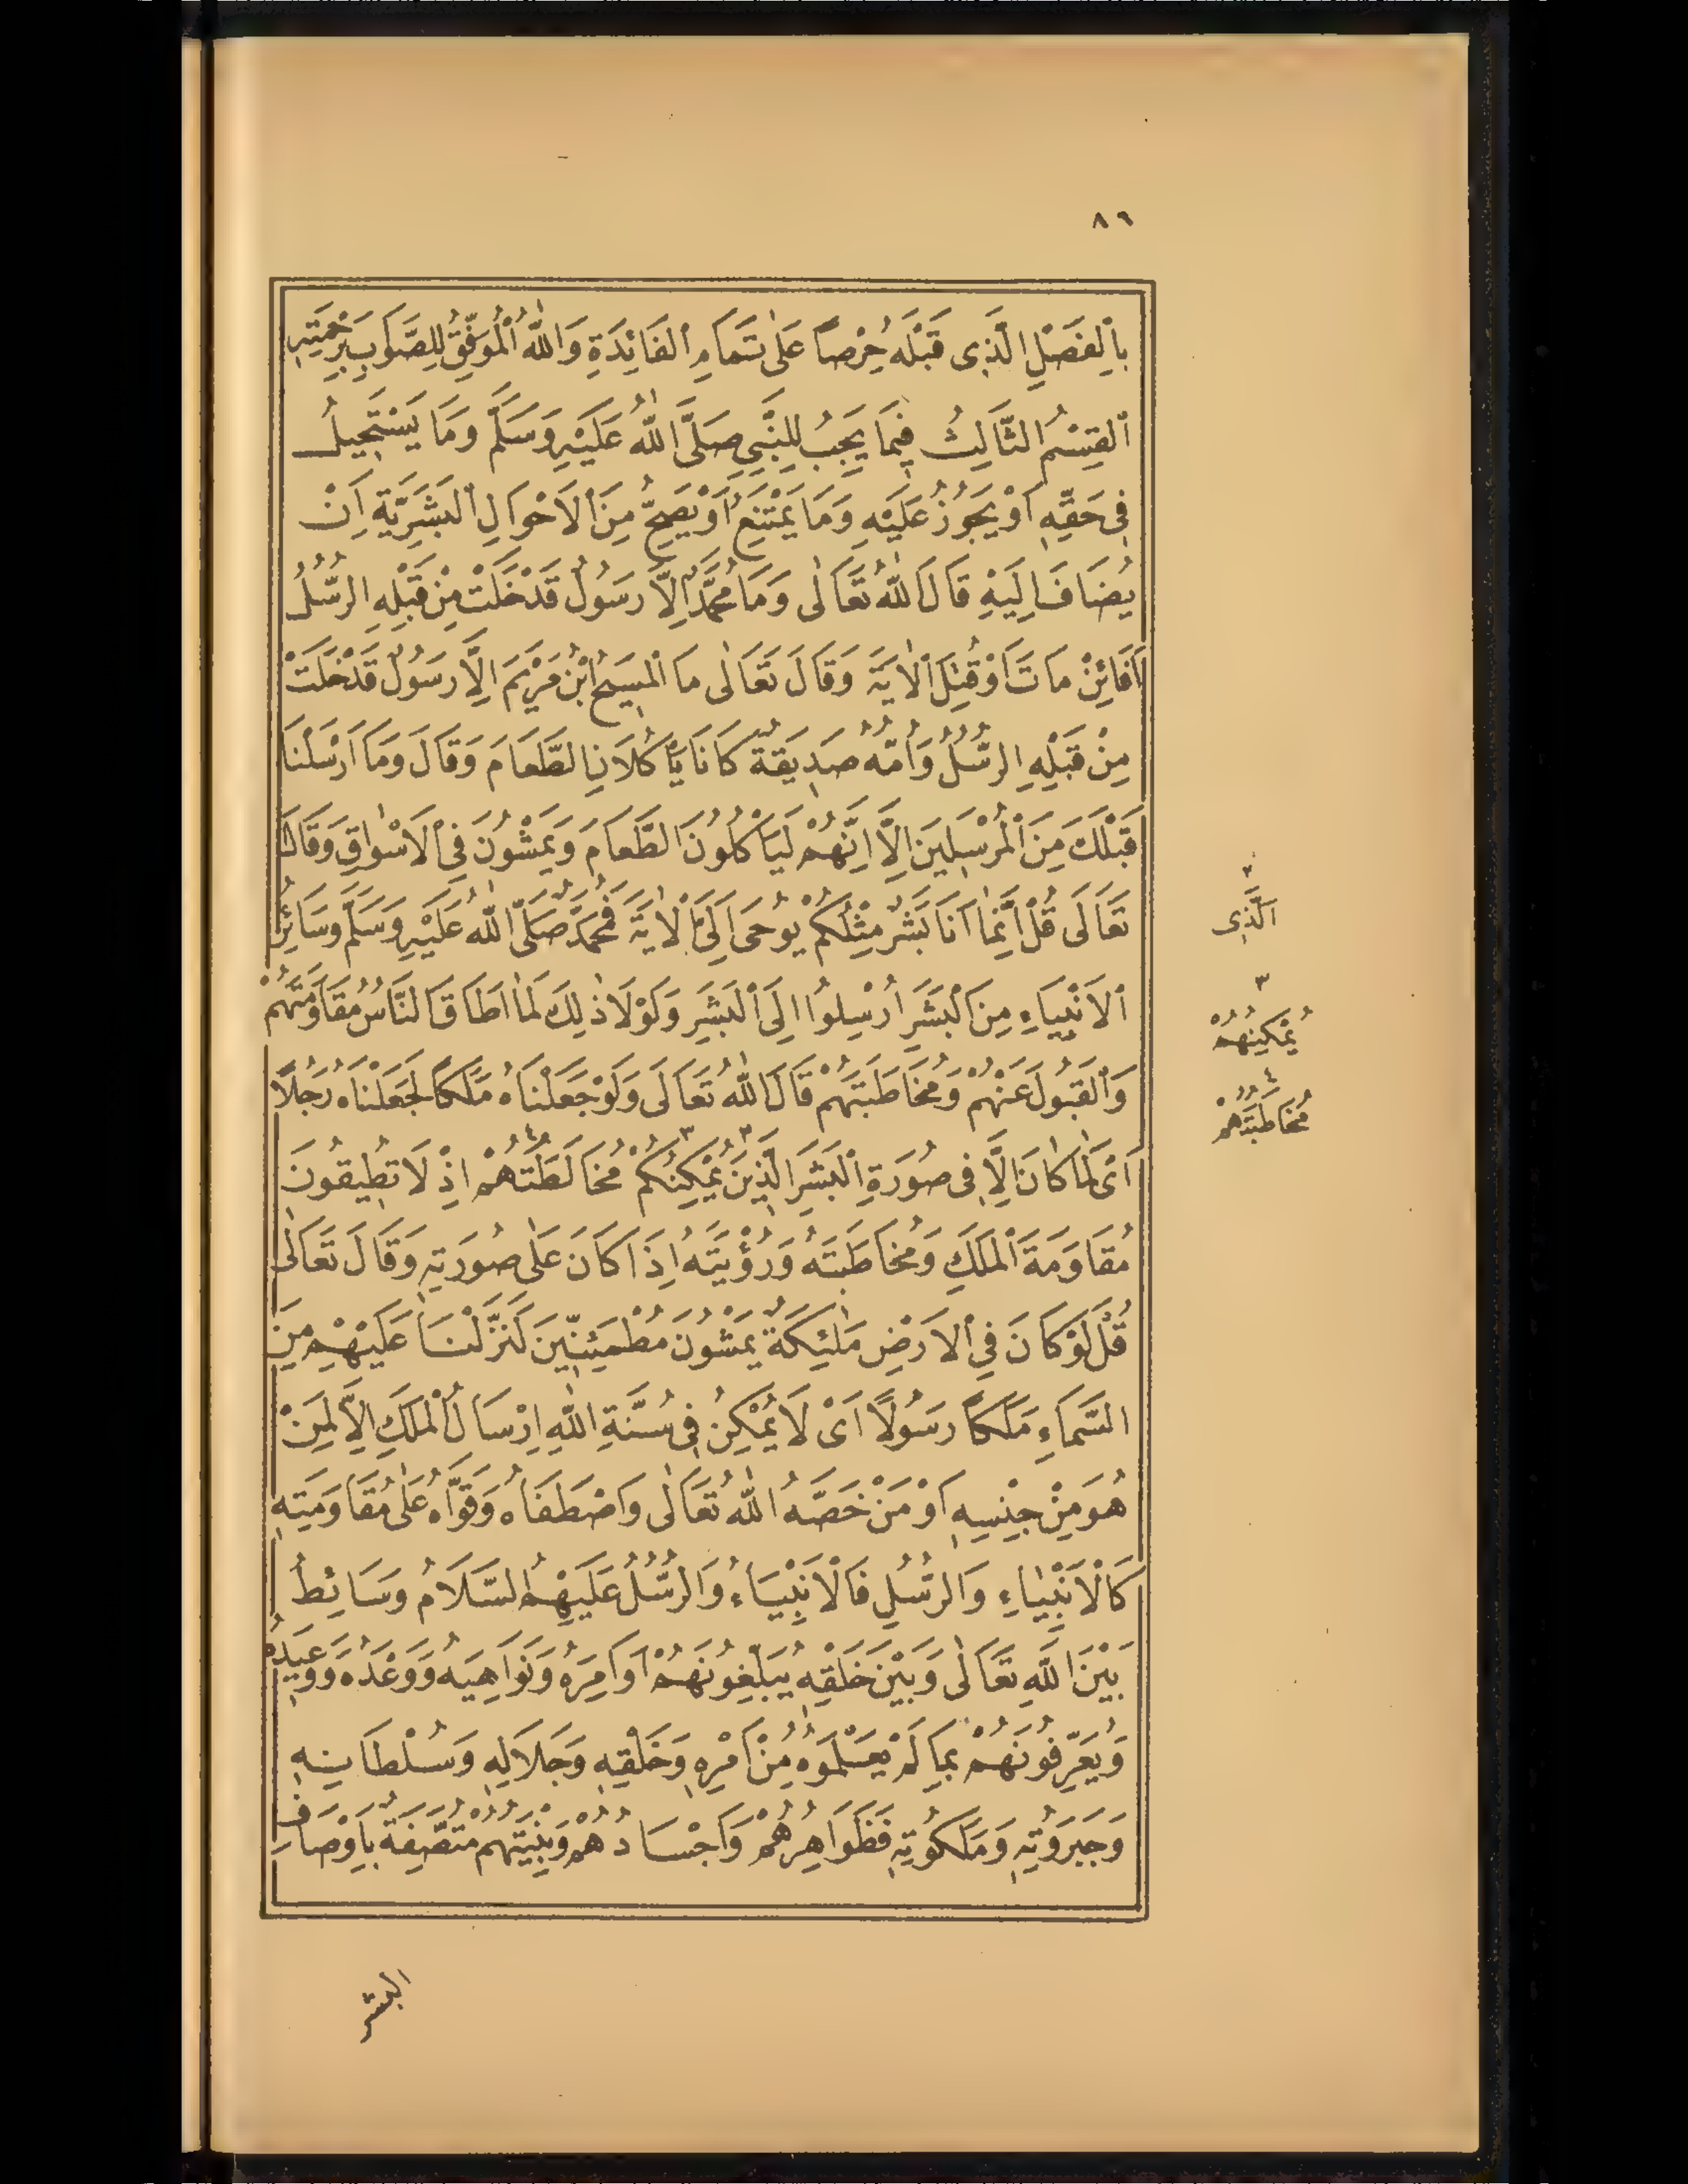 ٨٦
بِالْفَصْلِ الَّذِى قَبْلَهُ حِرْصاً عَلٰى تَمَامِ الْفَائِدَةِ وَاللّٰهُ الْمُوَفِّقُ لِلصَّوَابِ بِرَحْمَتِهِ
اَلْقِسْمُ الثَّالِثُ فِيمَا يَجِبُ لِلنَّبِىِّ صَلَّى اللّٰهُ عَلَيْهِ وَسَلَّمَ وَمَا يَسْتَحِيلُ
فِى حَقِّهِ اَوْ يَجُوزُ عَلَيْهِ وَمَا يَمْتَنِعُ اَوْ يَصِحُّ مِنَ الْاَحْوَالِ الْبَشَرِيَّةِ اَنْ
يُضَافَ اِلَيْهِ قَالَ اللّٰهُ تَعَالٰى وَمَا مُحَمَّدٌ اِلَّا رَسُولٌ قَدْ خَلَتْ مِنْ قَبْلِهِ الرُّسُلُ
اَفَائِنْ مَاتَ اَوْ قُتِلَ الْاٰيَةَ وَقَالَ تَعَالٰى مَا الْمَسِيحُ ابْنُ مَرْيَمَ اِلَّا رَسُولٌ قَدْ خَلَتْ
مِنْ قَبْلِهِ الرُّسُلُ وَاُمُّهُ صِدِّيقَةٌ كَانَا يَأْكُلَانِ الطَّعَامَ وَقَالَ وَمَا اَرْسَلْنَا
قَبْلَكَ مِنَ الْمُرْسَلِينَ اِلَّا اِنَّهُمْ لَيَأْكُلُونَ الطَّعَامَ وَيَمْشُونَ فِى الْاَسْوَاقِ وَقَالَ
تَعَالَى قُلْ اِنَّمَا اَنَا بَشَرٌ مِثْلُكُمْ يُوحَى اِلَىَّ الْاٰيَةَ فَمُحَمَّدٌ صَلَّى اللّٰهُ عَلَيْهِ وَسَلَّمَ وَسَائِرُ
اَلْاَنْبِيَاءِ مِنَ الْبَشَرِ اُرْسِلُوا اِلَى الْبَشَرِ وَلَوْلَا ذٰلِكَ لَمَا اَطَاقَ النَّاسُ مُقَاوَمَتَهُمْ
وَالْقَبُولَ عَنْهُمْ وَمُخَاطَبَتَهُمْ قَالَ اللّٰهُ تَعَالَى وَلَوْ جَعَلْنَاهُ مَلَكاً لَجَعَلْنَاهُ رَجُلًا
اَىْ لَمَا كَانَ اِلَّا فِى صُورَةِ الْبَشَرِ الَّذِينَ ٢ يُمْكِنُكُمْ ٣ مُخَالَطَتُهُمْ ٤ اِذْ لَا تُطِيقُونَ
مُقَاوَمَةَ الْمَلَكِ وَمُخَاطَبَتَهُ وَرُؤْيَتَهُ اِذَا كَانَ عَلٰى صُورَتِهِ وَقَالَ تَعَالٰى
قُلْ لَوْ كَانَ فِى الْاَرْضِ مَلٰئِكَةٌ يَمْشُونَ مُطْمَئِنِّينَ لَنَزَّلْنَا عَلَيْهِمْ مِنَ
السَّمَاءِ مَلَكاً رَسُولًا اَىْ لَا يُمْكِنُ فِى سُنَّةِ اللّٰهِ اِرْسَالُ الْمَلَكِ اِلَّا لِمَنْ
هُوَ مِنْ جِنْسِهِ اَوْ مَنْ خَصَّهُ اللّٰهُ تَعَالٰى وَاصْطَفَاهُ وَقَوَّاهُ عَلٰى مُقَاوَمَتِهِ
كَالْاَنْبِيَاءِ وَالرُّسُلِ فَالْاَنْبِيَاءُ وَالرُّسُلُ عَلَيْهِمُ السَّلَامُ وَسَائِطُ
بَيْنَ اللّٰهِ تَعَالٰى وَبَيْنَ خَلْقِهِ يُبَلِّغُونَهُمْ اَوَامِرَهُ وَنَوَاهِيَهُ وَوَعْدَهُ وَوَعِيدَهُ
وَيُعَرِّفُونَهُمْ بِمَا لَمْ يَعْلَمُوهُ مِنْ اَمْرِهِ وَخَلْقِهِ وَجَلَالِهِ وَسُلْطَانِهِ
وَجَبَرُوتِهِ وَمَلَكُوتِهِ فَظَوَاهِرُهُمْ وَاَجْسَادُهُمْ وَبِنْيَتُهُمْ مُتَّصِفَةٌ بِاَوْصَافِ
البشر
٢
اَلَّذِى
٣
يُمْكِنُهُمْ
٤
مُخَاطَبَتُهُمْ